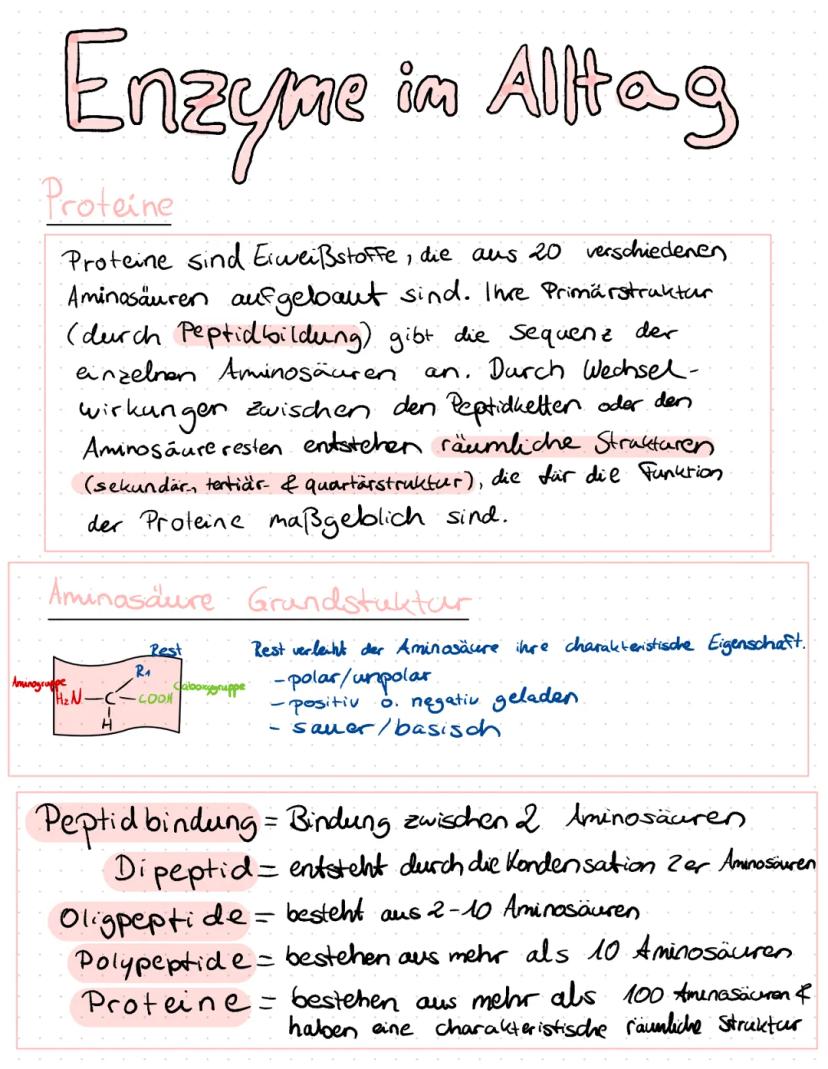 Enzyme im Alltag
Proteine
Proteine sind Eiweißstoffe, die aus 20 verschiedenen
Aminosäuren aufgebaut sind. Ihre Primärstruktur
(durch Peptidbildung) gibt die Sequenz der
einzelnen Aminosäuren an. Durch Wechsel-
wirkungen zwischen den Peptidketten oder den
Aminosäureresten entstehen räumliche Strukturen
(sekundär, tertiär & quartärstruktur), die für die Funktion
der Proteine maßgeblich sind.
Aminosäure Grundstuktur
Rest
R1
Aminogruppe
H2N-C-COOH
Caboxygruppe
H
Rest verleiht der Aminosäure ihre charakteristische Eigenschaft.
- polar/unpolar
- positiv o. negativ geladen
- sauer/basisch
Peptidbindung = Bindung zwischen 2 Aminosäuren
Dipeptid = entsteht durch die Kondensation 2er Aminosäuren
Oligpeptide = besteht aus 2-10 Aminosäuren
Polypeptide = bestehen aus mehr als 10 Aminosäuren
Proteine = bestehen aus mehr als 100 Aminosäuren &
haben eine charakteristische räumliche Struktur